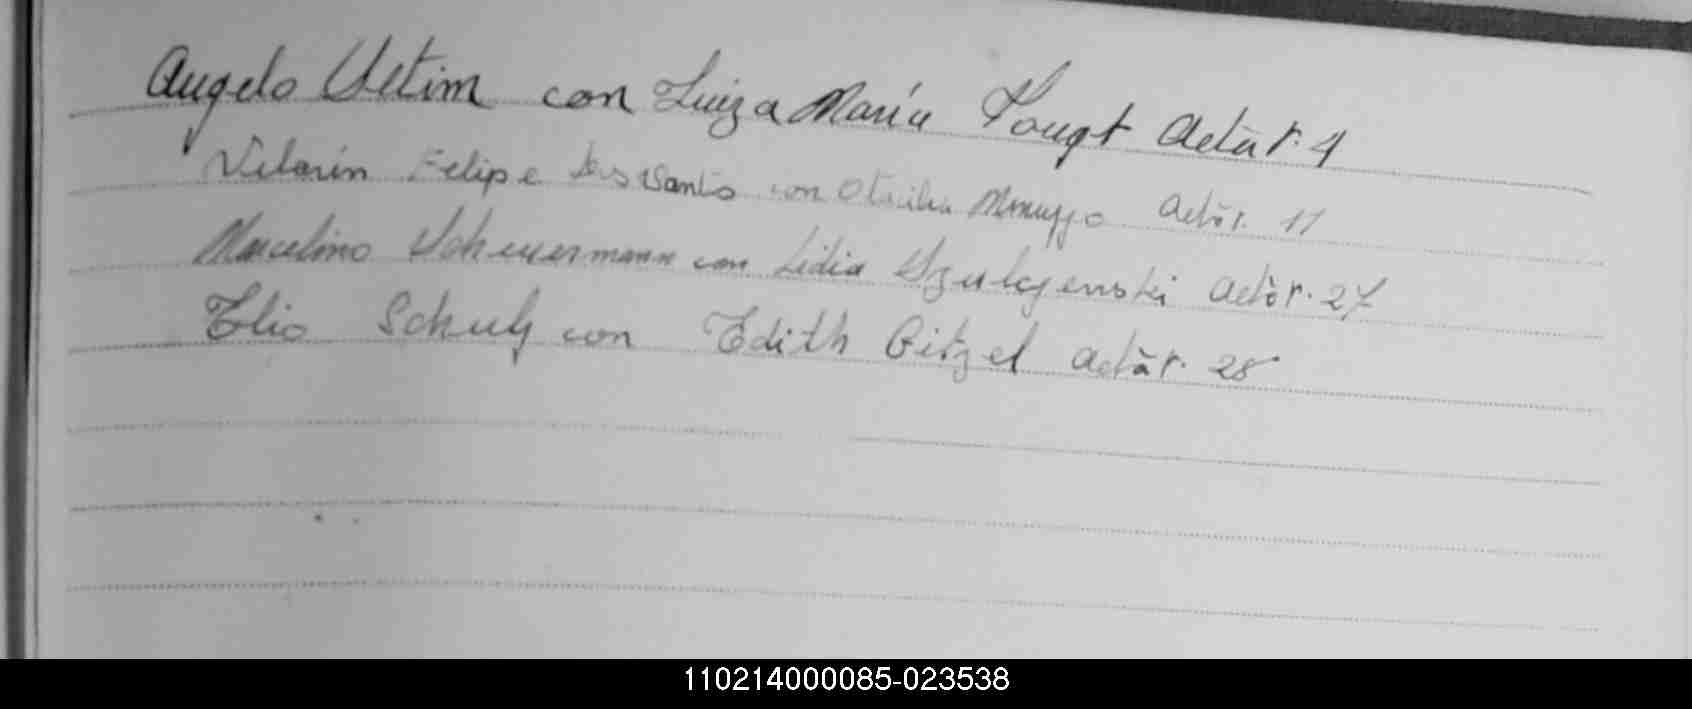 Angelo Vetim con Luiza María Vougt Actàr. 4
Vitorin Felipe dos Santo con Otailia Actàr. 11
Marcelino Scheuermann con Lidia Actàr. 27
Elio Schulz con Edith Gitzel actàr. 28
110214000085-023538